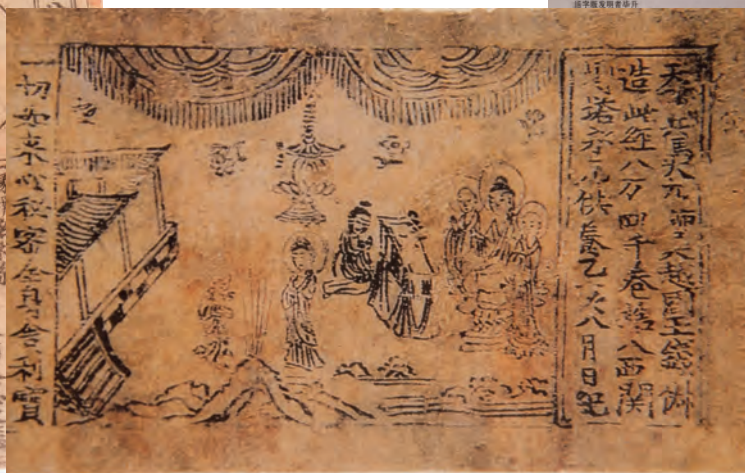 活字版发明者毕升
天下兵馬大元帥吳越國王錢俶
造此經八万四千卷捨入西關
塼塔永充供養乙亥八月日紀
一切如來心秘密全身舍利寶